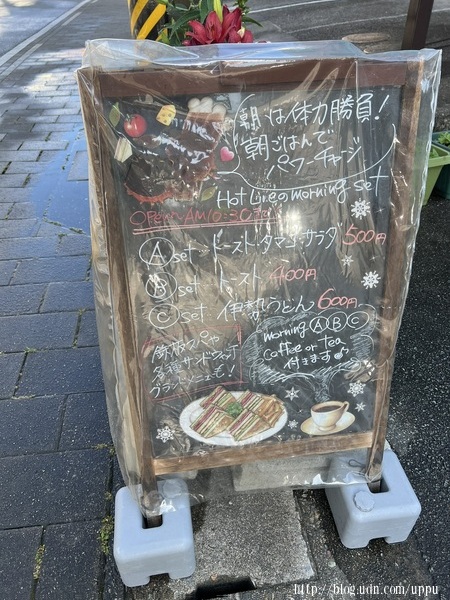 朝は体力勝負！
朝ごはんで
パワーチャージ
morning set
OPEN AM10:30
Ⓐset トースト・タマゴ・サラダ 500円
Ⓑset トースト 400円
Ⓒset 伊勢うどん 600円
鉄板ナパや
タマゴサンドウィッチ
グランドメニューも！
morning ⒶⒷⒸ
coffee or tea
付きます
http://blog.udn.com/uppu